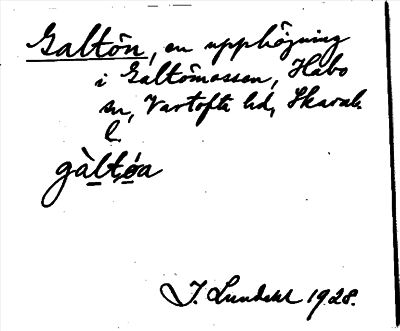 Galtön, en upphöjning
i Galtömossen, Habo
sn, Vartofta hd, Skarab.
l.
gàltǿa
J. Lundahl 1928.